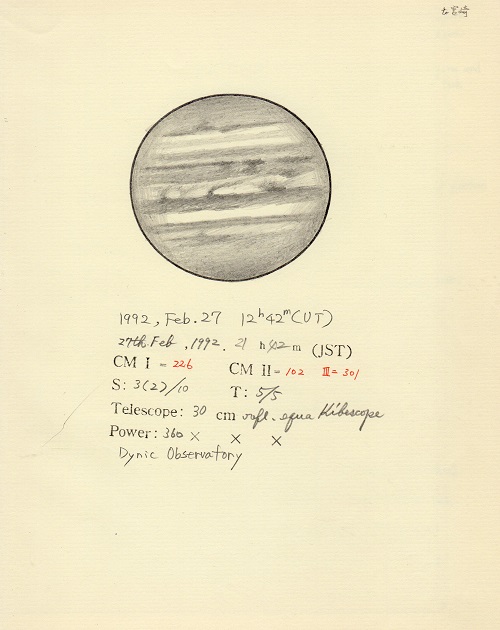 1992, Feb. 27 12h42m (UT)
27th Feb, 1992. 21 h 42 m (JST)
CM I = 226 CM II = 102 III = 301
S: 3(2)/10 T: 5/5
Telescope: 30 cm refl. equa
Power: 360 × × ×
Dynic Observatory